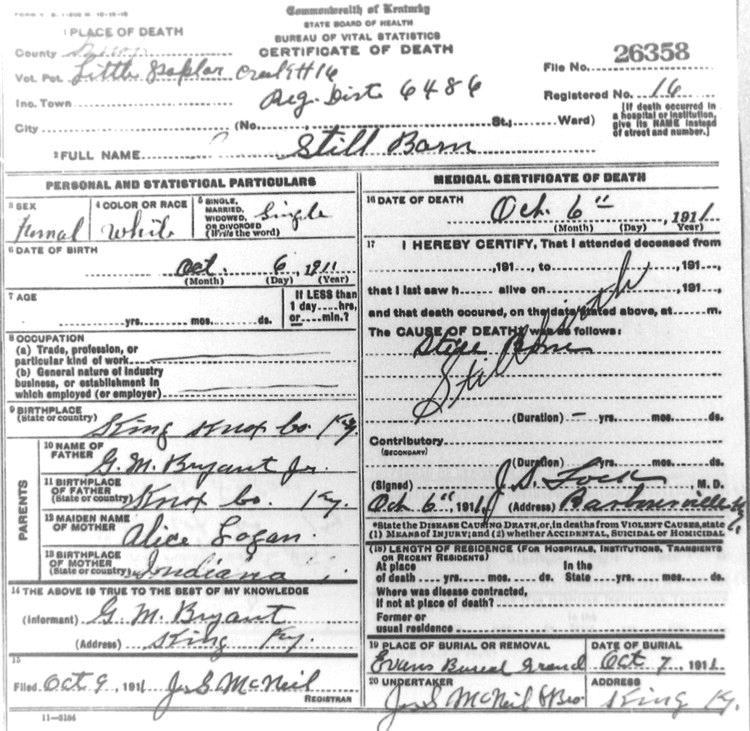 FORM V. S. 1-
Commonwealth of Kentucky
STATE BOARD OF HEALTH
BUREAU OF VITAL STATISTICS
CERTIFICATE OF DEATH
1 PLACE OF DEATH
County
Vot. Pct. Little Poplar Creek #16
Inc. Town Reg. Dist 6486
City (No. St.; Ward)
File No. 26358
Registered No. 16
[If death occurred in
a hospital or institution,
give its NAME instead
of street and number.]
2 FULL NAME Still Born
PERSONAL AND STATISTICAL PARTICULARS
3 SEX
Femal
4 COLOR OR RACE
White
5 SINGLE,
MARRIED,
WIDOWED,
OR DIVORCED
(Write the word)
Single
6 DATE OF BIRTH
Oct. 6, 1911
(Month) (Day) (Year)
7 AGE
yrs. mos. ds.
If LESS than
1 day....hrs,
or....min.?
8 OCCUPATION
(a) Trade, profession, or
particular kind of work
(b) General nature of industry
business, or establishment in
which employed (or employer)
9 BIRTHPLACE
(State or country) King Knox Co. Ky.
PARENTS
10 NAME OF
FATHER G. M. Bryant Jr.
11 BIRTHPLACE
OF FATHER
(State or country) Knox Co. Ky
12 MAIDEN NAME
OF MOTHER Alice Logan
13 BIRTHPLACE
OF MOTHER
(State or country) Indiana
14 THE ABOVE IS TRUE TO THE BEST OF MY KNOWLEDGE
(Informant) G. M. Bryant
(Address) King Ky.
15
Filed Oct 9, 1911 Jas S McNeil
REGISTRAR
11-3184
MEDICAL CERTIFICATE OF DEATH
16 DATE OF DEATH
Oct. 6", 1911
(Month) (Day) (Year)
17 I HEREBY CERTIFY, That I attended deceased from
, 191..., to , 191...,
that I last saw h alive on , 191...,
and that death occured, on the date stated above, at m.
The CAUSE OF DEATH was as follows:
Still Born
Stillbirth
(Duration) – yrs. mos. ds.
Contributory
(SECONDARY)
(Duration) yrs. mos. ds.
(Signed) J. S. Lock M. D.
Oct 6", 1911 (Address) Barbourville Ky.
*State the DISEASE CAUSING DEATH, or, in deaths from VIOLENT CAUSES, state
(1) MEANS OF INJURY; and (2) whether ACCIDENTAL, SUICIDAL or HOMICIDAL
(18) LENGTH OF RESIDENCE (FOR HOSPITALS, INSTITUTIONS, TRANSIENTS
OR RECENT RESIDENTS)
At place In the
of death yrs. mos. ds. State yrs. mos. ds.
Where was disease contracted,
If not at place of death?
Former or
usual residence
19 PLACE OF BURIAL OR REMOVAL
Evans Burial Grand
DATE OF BURIAL
Oct 7, 1911
20 UNDERTAKER
Jas S McNeil & Bro
ADDRESS
King Ky.